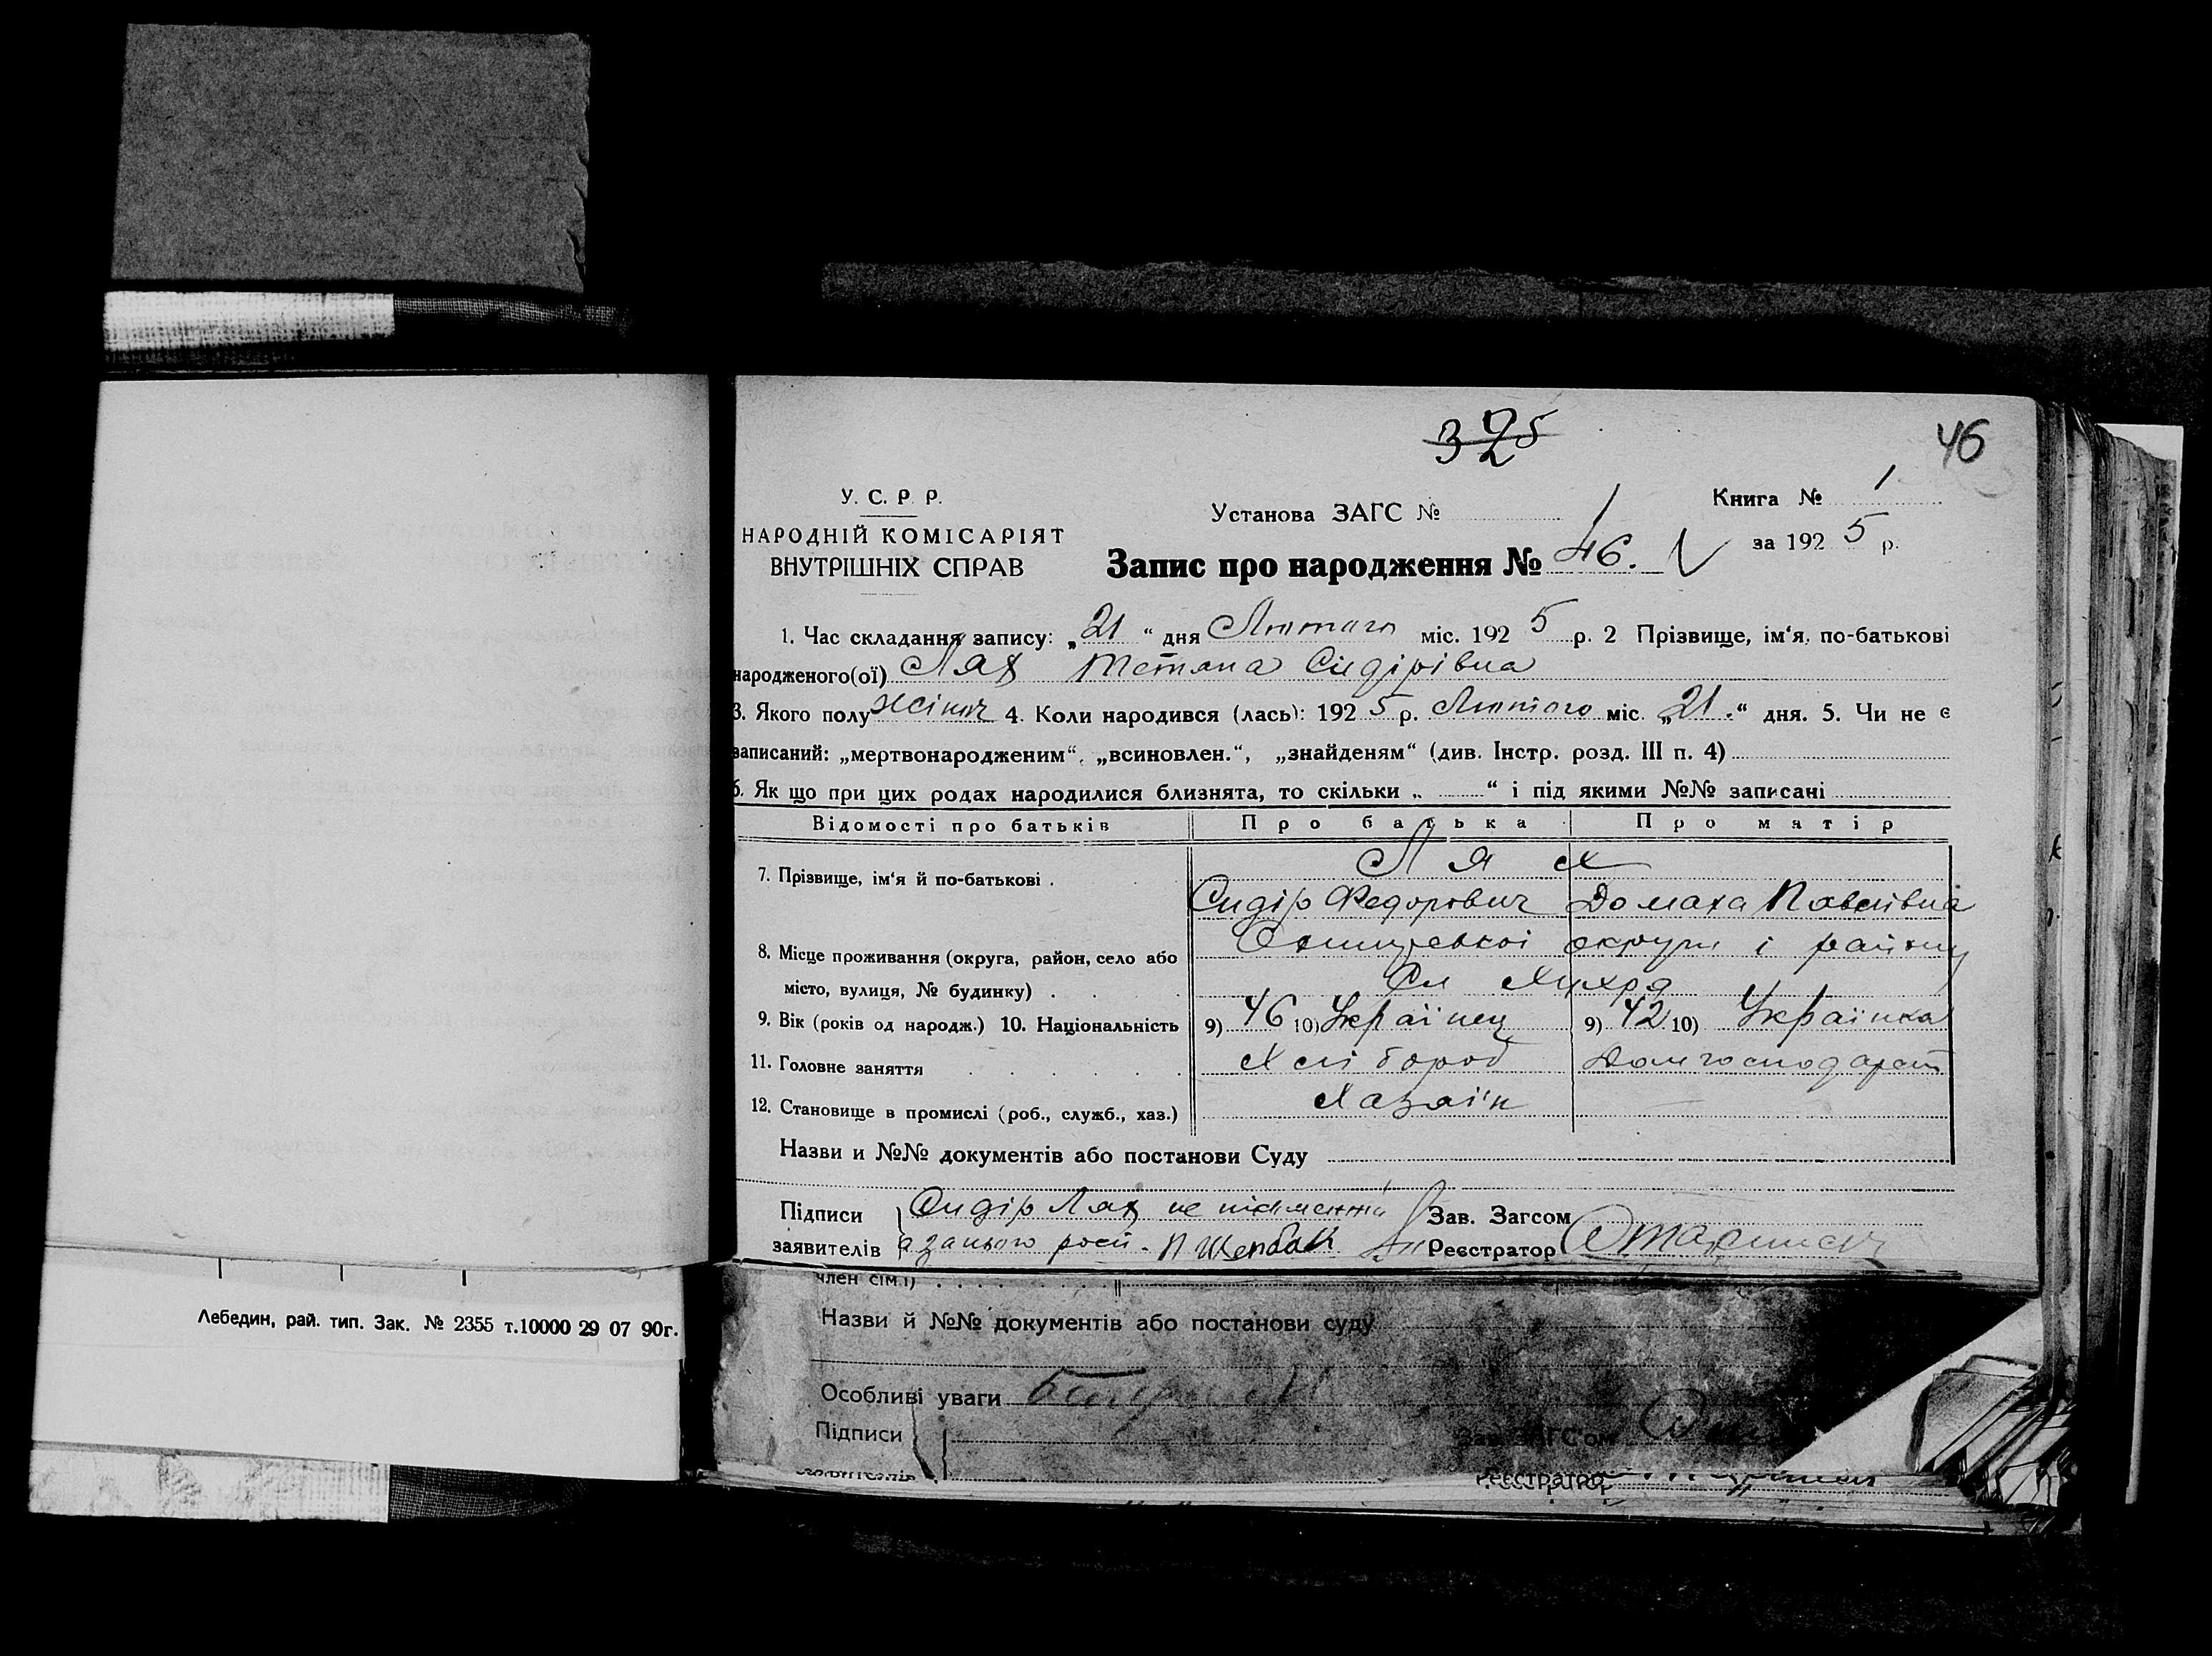 325
46
У. С. Р. Р.
НАРОДНІЙ КОМІСАРІЯТ
ВНУТРІШНІХ СПРАВ
Установа ЗАГС №
Книга № 1
за 1925 р.
Запис про народження № 46.
1. Час складання запису: „21“ дня Лютого міс. 1925 р. 2 Прізвище, ім‘я, по-батькові
народженого(ої) Лях Тетяна Сидірівна
3. Якого полу жіноч 4. Коли народився (лась): 1925 р. Лютого міс. „21.“ дня. 5. Чи не є
записаний: „мертвонародженим“, „всиновлен.“, „знайденям“ (див. Інстр. розд. III п. 4)
6. Як що при цих родах народилися близнята, то скільки „ “ і під якими №№ записані
Відомості про батьків Про батька Про матір
7. Прізвище, ім‘я й по-батькові . Лях
Сидір Федорович Домаха Павлівна
8. Місце проживання (округа, район, село або округи і району
місто, вулиця, № будинку) .
9. Вік (років од народж.) 10. Національність 9) 46 10) Українец 9) 42 10) Українка
11. Головне заняття Хлібороб Домгосподарст
12. Становище в промислі (роб., служб., хаз.) Хазаїн
Назви и №№ документів або постанови Суду
Підписи Сидір Лях не Зав. Загсом
заявителів а за нього П Щербак Реєстратор
член сім.ї)
Назви й №№ документів або постанови суду
Особливі уваги
Підписи Зав. ЗАГС'ом
Реєстратор
Лебедин, рай. тип. Зак. № 2355 т.10000 29 07 90г.